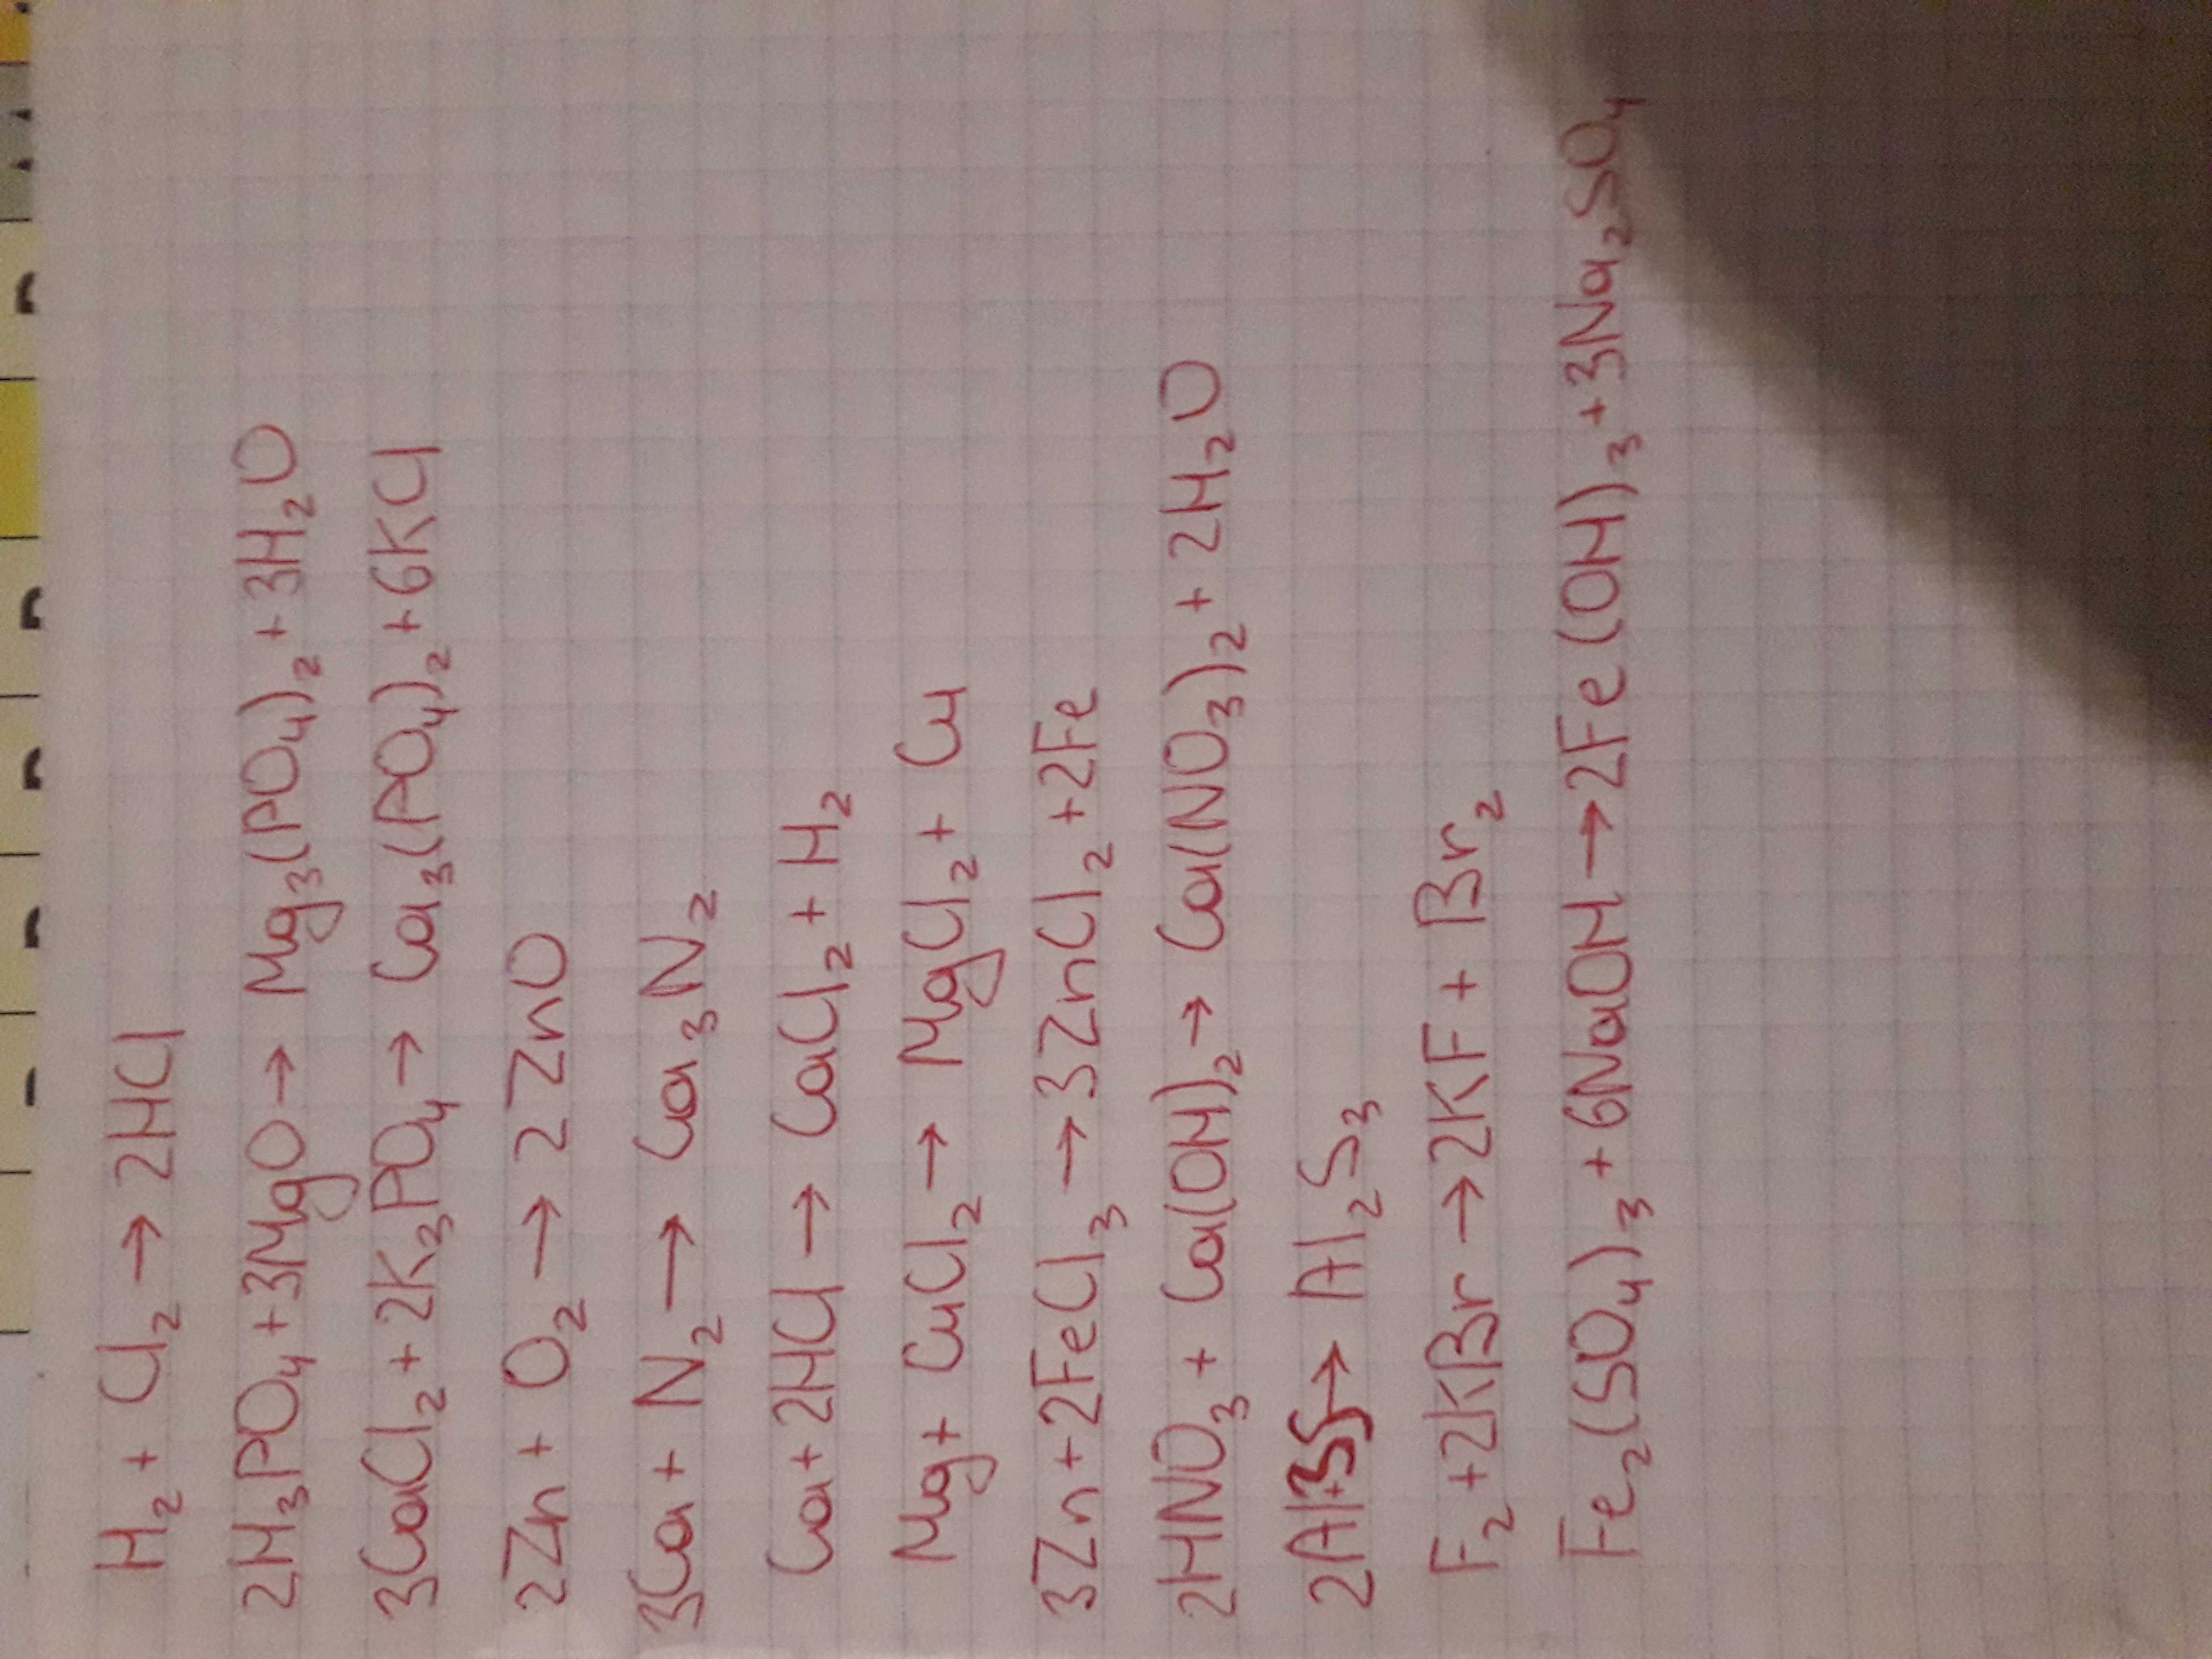 H₂ + Cl₂ → 2HCl
2H₃PO₄ + 3MgO → Mg₃(PO₄)₂ + 3H₂O
3CaCl₂ + 2K₃PO₄ → Ca₃(PO₄)₂ + 6KCl
2Zn + O₂ → 2ZnO
3Ca + N₂ → Ca₃N₂
Ca + 2HCl → CaCl₂ + H₂
Mg + CuCl₂ → MgCl₂ + Cu
3Zn + 2FeCl₃ → 3ZnCl₂ + 2Fe
2HNO₃ + Ca(OH)₂ → Ca(NO₃)₂ + 2H₂O
2Al+3S → Al₂S₃
F₂ + 2KBr → 2KF + Br₂
Fe₂(SO₄)₃ + 6NaOH → 2Fe(OH)₃ + 3Na₂SO₄